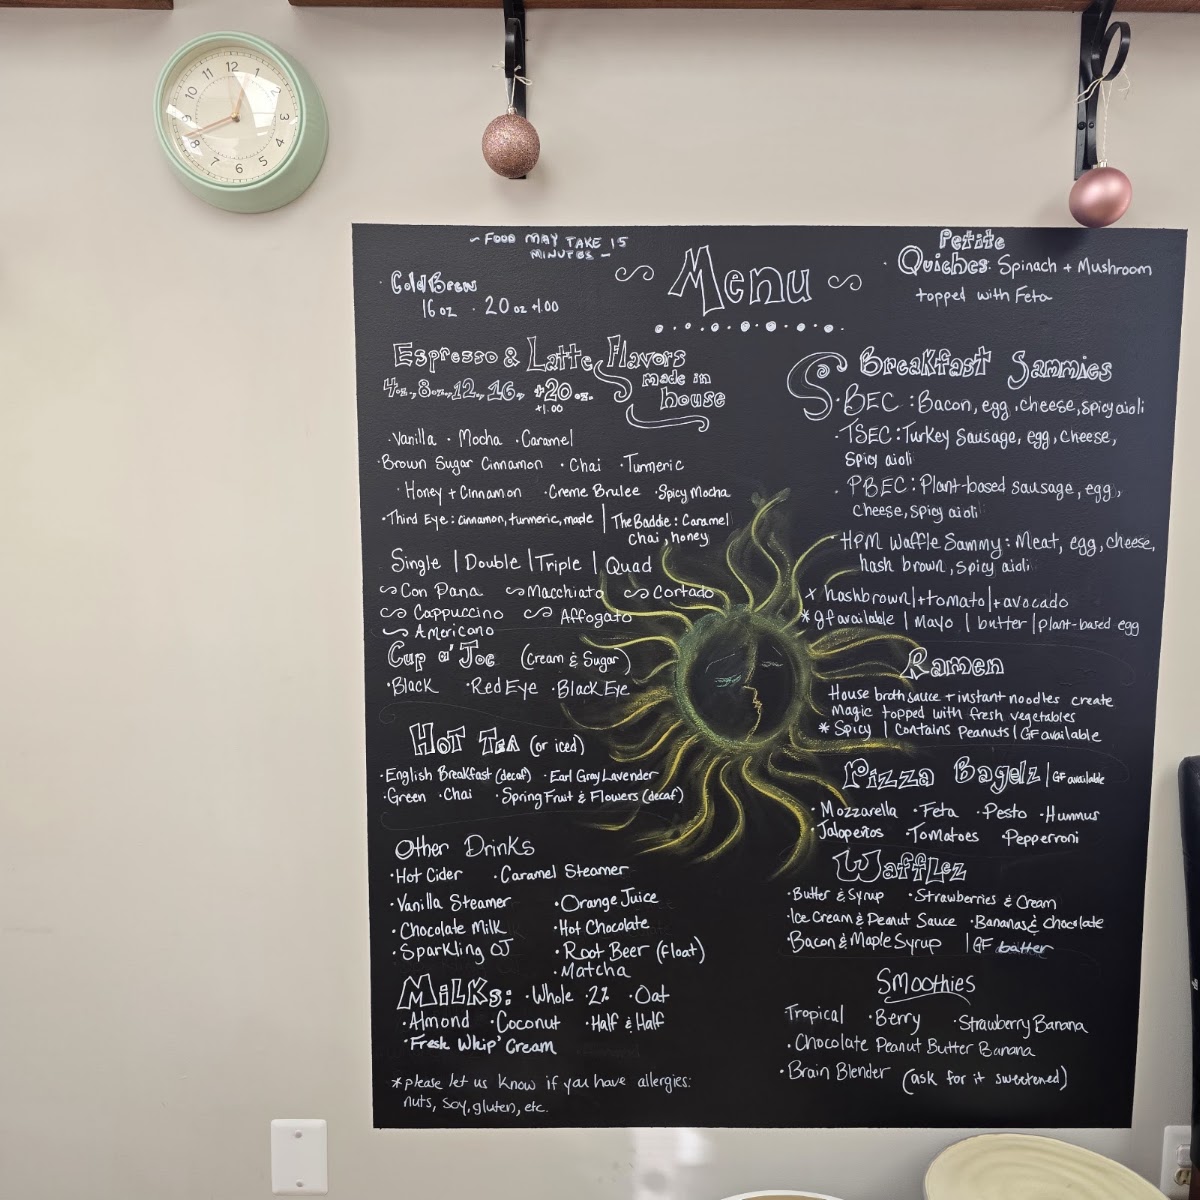 12
1
2
3
4
5
6
7
8
9
10
11
~ FOOD MAY TAKE 15
MINUTES ~
Menu
· Cold Brew
16 oz · 20 oz +1.00
Espresso & Latte Flavors
made in
house
4oz., 8oz., 12., 16., +20 oz.
+1.00
· Vanilla · Mocha · Caramel
· Brown Sugar Cinnamon · Chai · Turmeric
· Honey + Cinnamon · Creme Brulee · Spicy Mocha
· Third Eye: cinnamon, turmeric, maple | The Baddie: Caramel
chai, honey
Single | Double | Triple | Quad
Con Pana Macchiato Cortado
Cappuccino Affogato
Americano
Cup o' Joe (Cream & Sugar)
· Black · Red Eye · Black Eye
Hot Tea (or iced)
· English Breakfast (decaf) · Earl Grey Lavender
· Green · Chai · Spring Fruit & Flowers (decaf)
Other Drinks
· Hot Cider · Caramel Steamer
· Vanilla Steamer · Orange Juice
· Chocolate Milk · Hot Chocolate
· Sparkling OJ · Root Beer (Float)
· Matcha
Milks: · Whole · 2% · Oat
· Almond · Coconut · Half & Half
· Fresh Whip' Cream
* please let us know if you have allergies:
nuts, soy, gluten, etc.
Petite
· Quiches: Spinach + Mushroom
topped with Feta
Breakfast Sammies
· BEC : Bacon, egg, cheese, spicy aioli
· TSEC: Turkey Sausage, egg, cheese,
Spicy aioli
· PBEC: Plant-based sausage, egg,
cheese, spicy aioli
· HPM Waffle Sammy: Meat, egg, cheese,
hash brown, spicy aioli
x hashbrown | + tomato | + avocado
* gf available | Mayo | butter | plant-based egg
Ramen
House broth sauce + instant noodles create
Magic topped with fresh vegetables
* Spicy | Contains Peanuts | GF available
Pizza Bagelz | GF available
· Mozzarella · Feta · Pesto · Hummus
· Jalapeños · Tomatoes · Pepperroni
Wafflez
· Butter & Syrup · Strawberries & Cream
· Ice Cream & Peanut Sauce · Bananas & Chocolate
· Bacon & Maple Syrup | GF batter
Smoothies
· Tropical · Berry · Strawberry Banana
· Chocolate Peanut Butter Banana
· Brain Blender (ask for it sweetened)